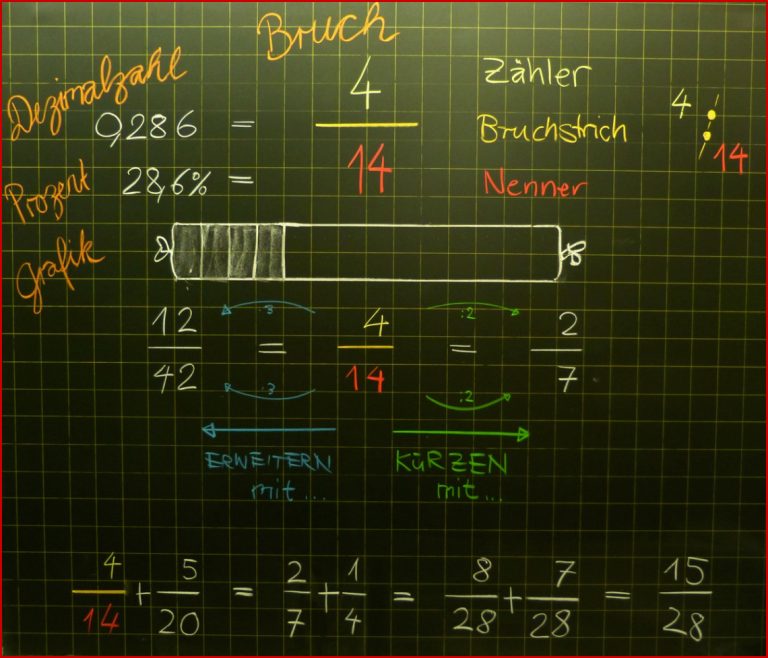 Bruch
Dezimalzahl 0,286 = 4/14 Zähler Bruchstrich Nenner 4 : 14
Prozent 28,6% =
Grafik
12/42 = 4/14 = 2/7
·3 :2
·3 :2
ERWEITERN mit... KÜRZEN mit...
4/14 + 5/20 = 2/7 + 1/4 = 8/28 + 7/28 = 15/28